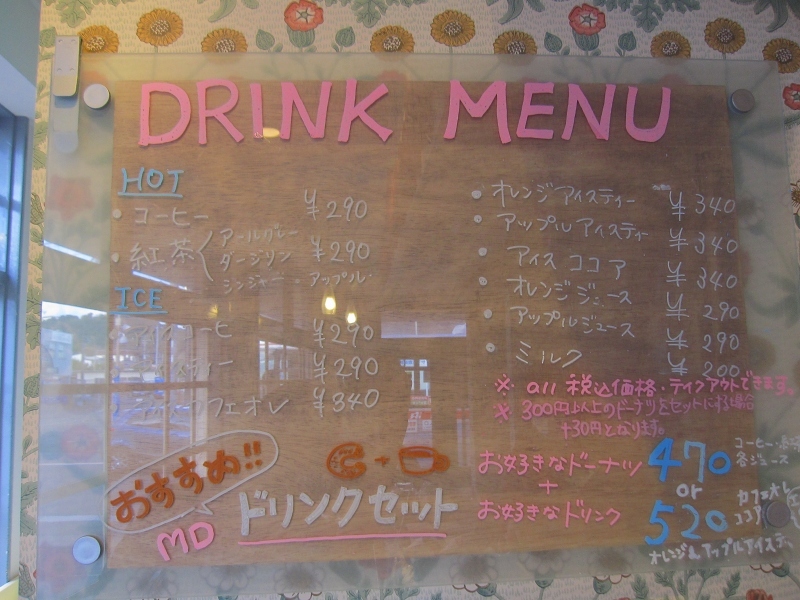 DRINK MENU
HOT
・コーヒー ¥290
・紅茶 アールグレー
ダージリン ¥290
シンジャー・アップル・
ICE
・アイスコーヒー ¥290
・アイスティー ¥290
・アイスカフェオレ ¥340
・オレンジアイスティー ¥340
・アップルアイスティ ¥340
・アイス ココア ¥340
・オレンジジュース ¥290
・アップルジュース ¥290
・ミルク ¥200
※ all 税込価格・テイクアウトできます。
※ 300円以上のドーナツをセットにする場合
+30円となります。
おすすめ!!
MD ドリンクセット
+
お好きなドーナツ
+
お好きなドリンク
470
コーヒー・
各ジュース
or
520
カフェオレ
ココア
オレンジ&アップルアイスティ